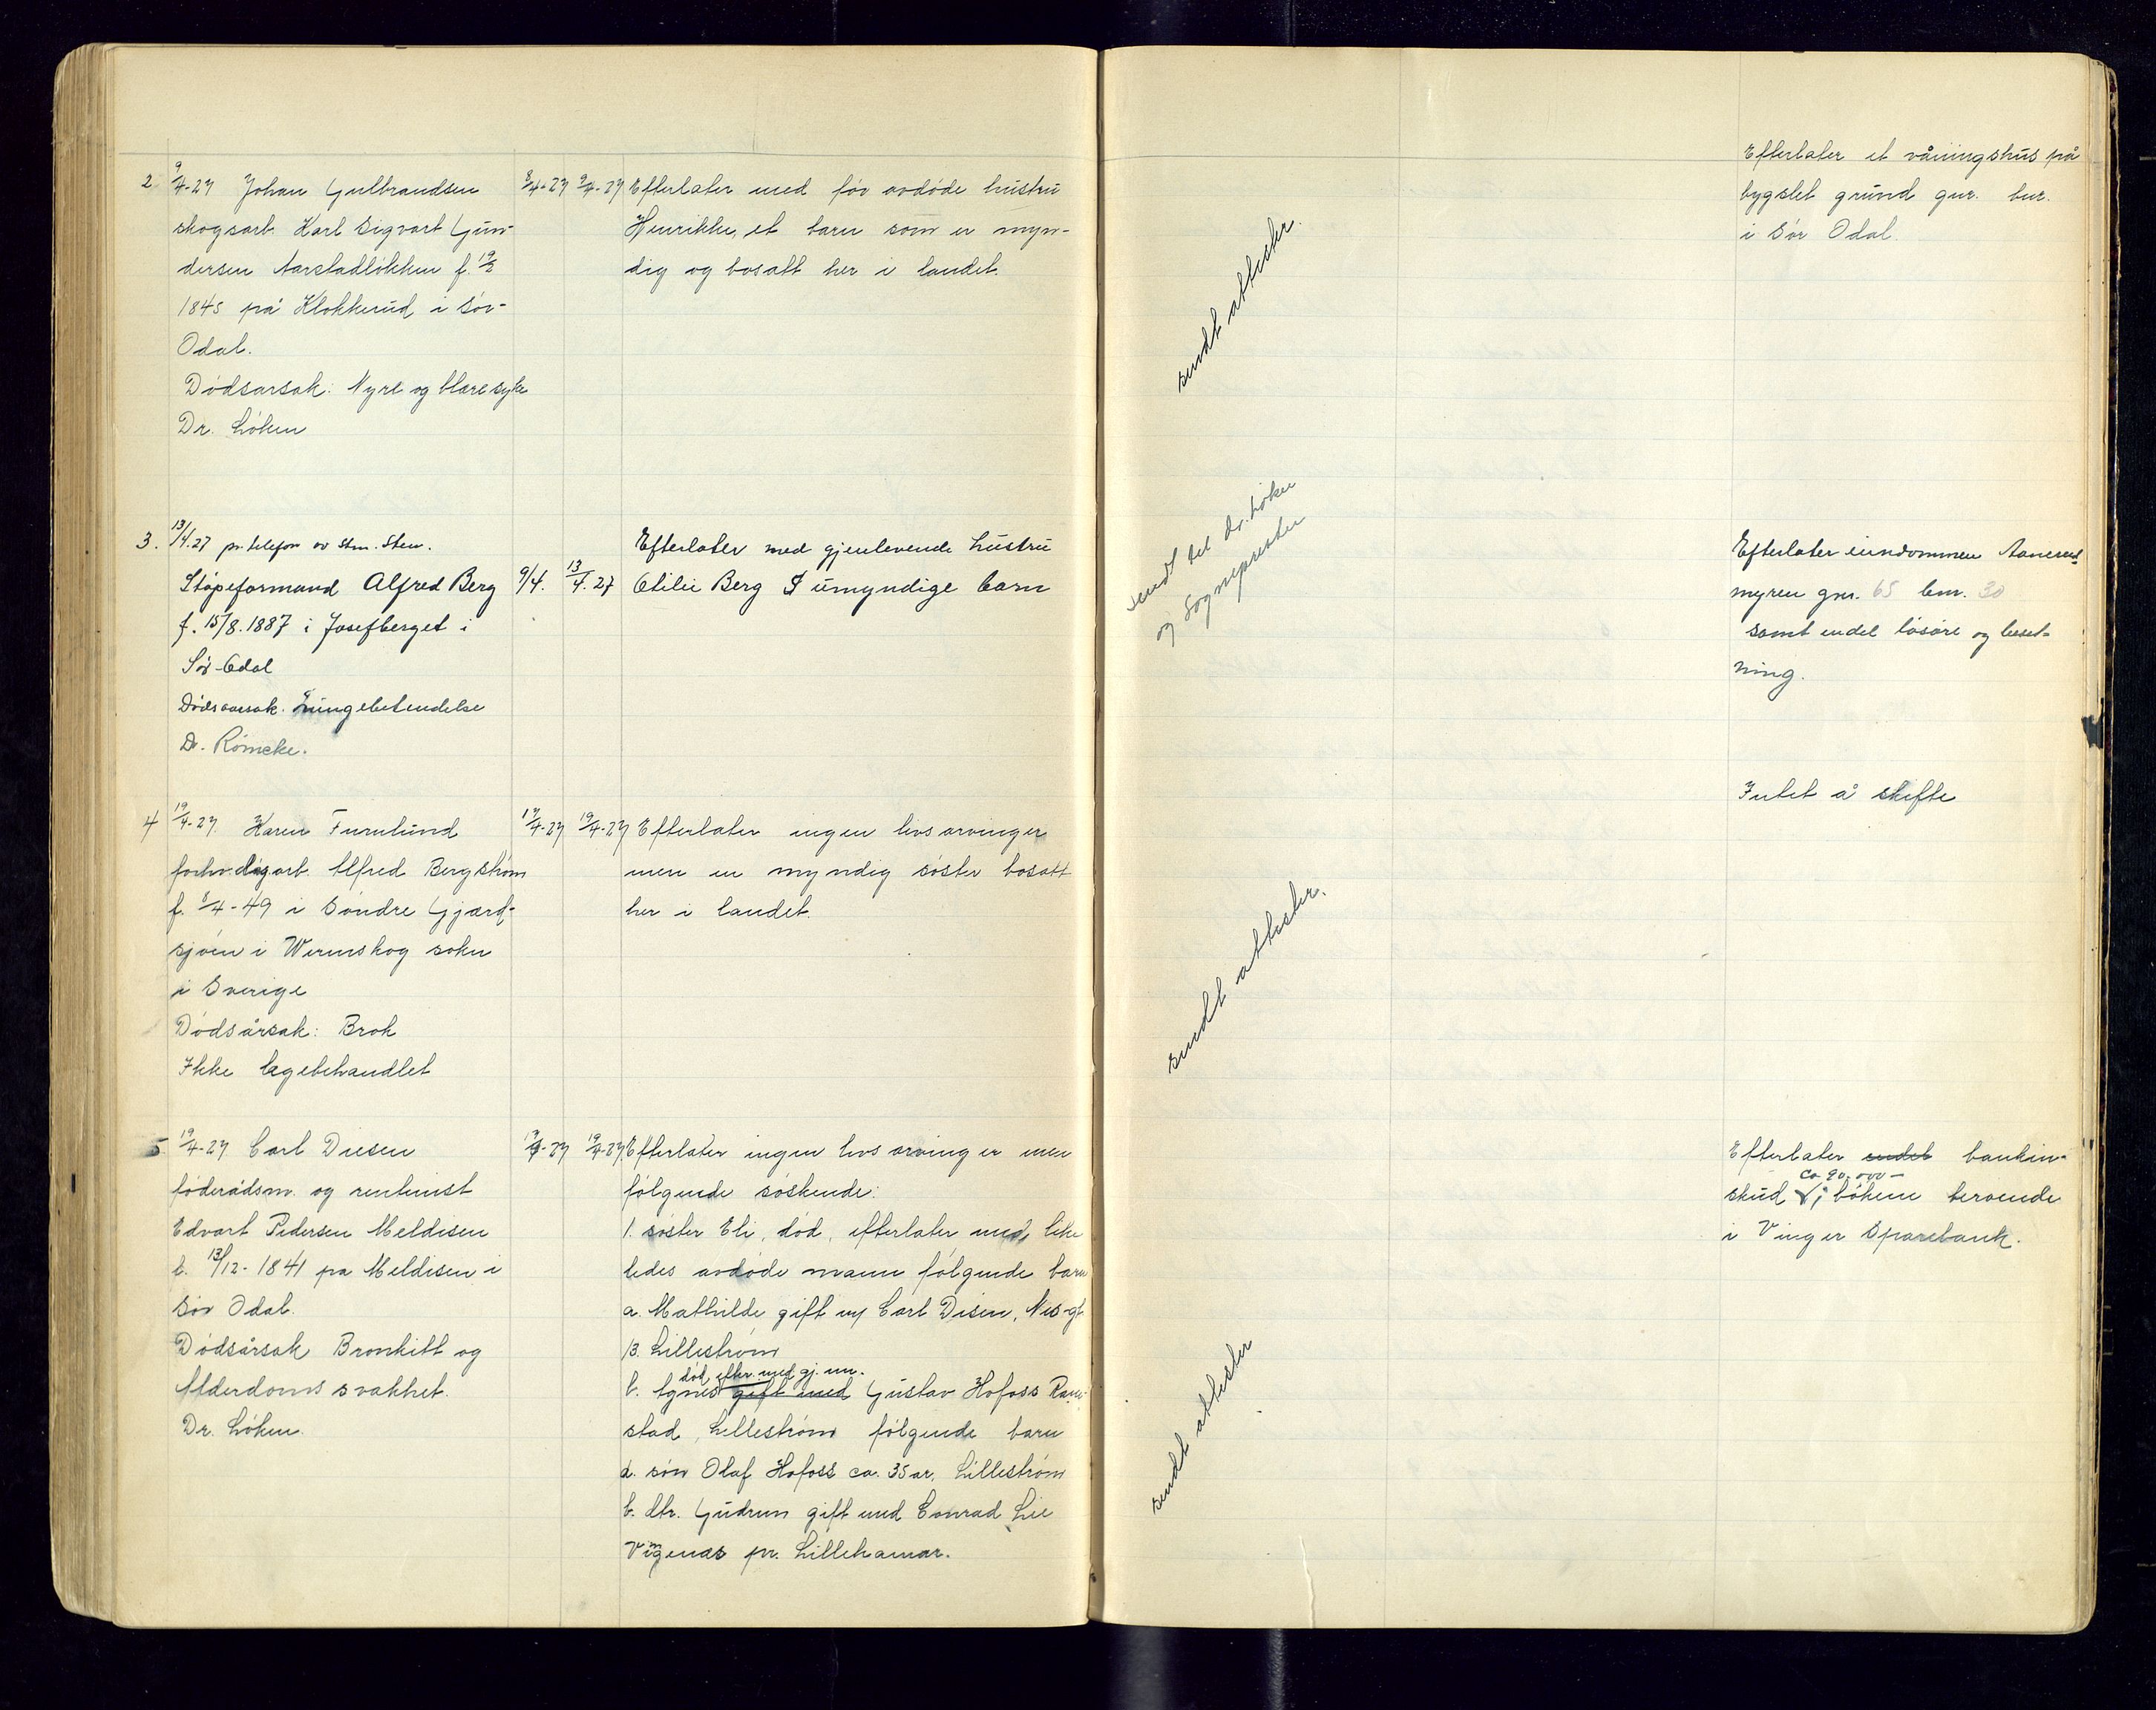 2 9/4-27 Johan Gulbrandsen
skogsarb. Karl Sigvart Gun-
dersen Aarstadløkken f. 19/2
1845 på Klokkerud i Sør-
Odal.
Dødsarsak: Nyre og blæresyke
Dr. Løken
8/4-27 9/4-27 Efterlater med før avdøde hustru
Henrikke, et barn som er myn-
dig og bosatt her i landet.
sendt attester.
Efterlater et våningshus på
bygslet grund gnr. bnr.
i Sør Odal.
3. 13/4.27 pr. telefon av Stm. Sten.
Støpeformand Alfred Berg
f. 15/8.1887 i Josefberget i
Sør-Odal
Dødsaarsak. Lungebetendelse
Dr. Römcke.
9/4. 13/4.27
Efterlater med gjenlevende hustru
Otilie Berg umyndige barn
sendt til Dr. Løken
og Sognepresten
Efterlater eiendommen
myren gnr. 65 bnr. 30
samt endel løsøre og beset-
ning.
4 19/4-27. Karen Furulund
forhv. dagarb. Alfred Bergstrøm
f. 8/4-49 i Søndre Gjærd-
sjøen i Wermskog sokn
i Sverige
Dødsårsak: Brok
Ikke lægebehandlet
17/4-27 19/4-27 Efterlater ingen livsarvinger
men en myndig søster bosatt
her i landet.
sendt attester.
Intet å skifte
5 19/4-27 Carl Diesen
føderådsm. og rentenist
Edvart Pedersen Meldisen
f. 13/12-1841 pa Meldisen i
Sør Odal.
Dødsårsak Bronkitt og
Alderdomssvakhet.
Dr. Løken.
17/4-27 19/4-27 Efterlater ingen livsarvinger men
følgende søskende:
1. søster Eli, død, efterlater med like
ledes avdøde mann følgende barn
a. Mathilde gift m/ Carl Disen, Nes-gt.
13. Lillestrøm
død, efter. med gj. m.
b. Agnes gift med Gustav Hofoss
stad, Lillestrøm følgende barn
a. søn Olaf Hofoss ca. 35 ar, Lillestrøm
b. dtr. Gudrun gift med Conrad Lie
Vignes pr. Lillehamar.
sendt attester
Efterlater endel bankin-
ca 90.000 –
skud i bøkene beroende
i Vinger Sparebank.